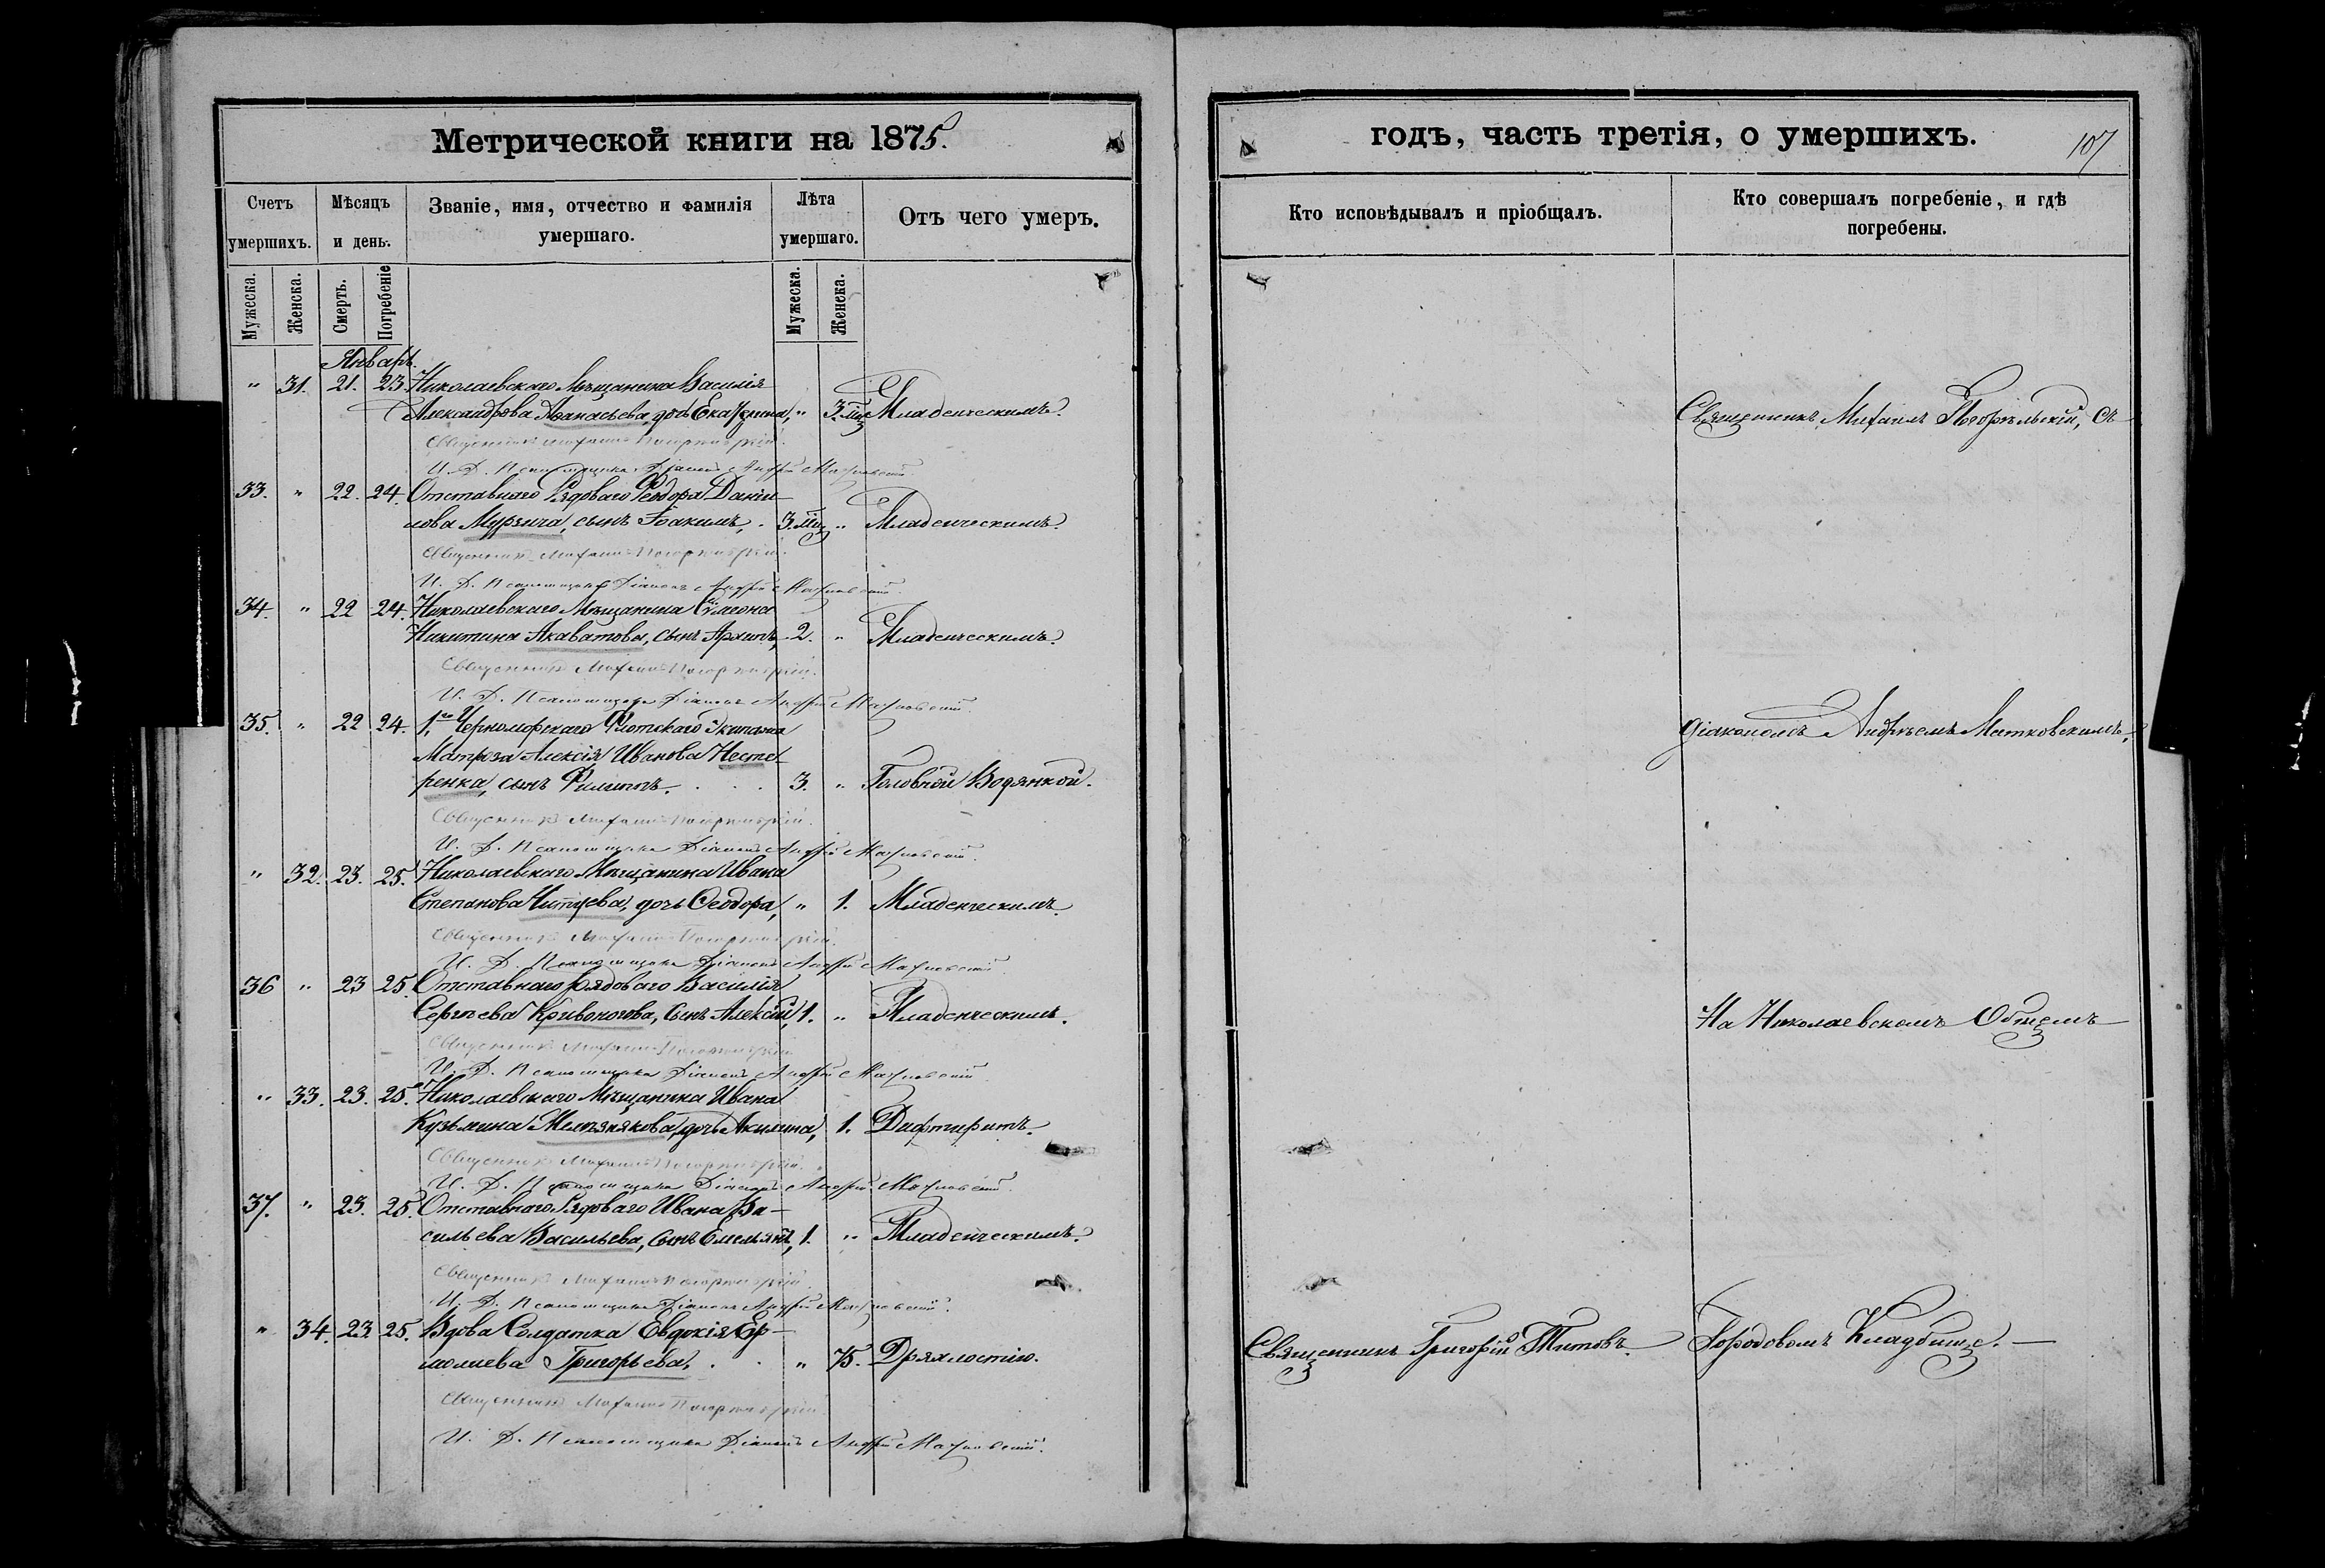 Метрической книги на 1875.
Счетъ умершихъ.
Мѣсяцъ и день.
Званіе, имя, отчество и фамилія умершаго.
Лѣта умершаго.
Отъ чего умеръ.
Мужеска. Женска. Смерть. Погребеніе Мужеска. Женска.
Январь.
" 31. 21. 23 Николаевскаго Мѣщанина Василія
Александрова Аѳанасьева, дочь Екатерина, " 3. мц Младенческимъ.
Священникъ Михаилъ
И. Д. Псаломщика Діаконъ Андрей Матковскій.
33. " 22. 24. Отставнаго Рядоваго Ѳеодора Дани-
лова Мурзича, сынъ Іоакимъ, . 3. мц " Младенческимъ.
Священникъ Михаилъ
И. Д. Псаломщика Діаконъ Андрей Матковскій.
34. " 22 24. Николаевскаго Мѣщанина Симеона
Никитина Акаватова, сынъ Архипъ, 2. " Младенческимъ.
Священникъ Михаилъ
И. Д. Псаломщика Діаконъ Андрей Матковскій.
35. " 22 24. 1го Черноморскаго Флотскаго Экипажа
Матроза Алексія Иванова Несте-
ренка, сынъ Филиппъ. . . . 3. " Головной Водянкой.
Священникъ Михаилъ
И. Д. Псаломщика Діаконъ Андрей Матковскій.
" 32. 23. 25. Николаевскаго Мѣщанина Ивана
Степанова дочь Ѳеодора, " 1. Младенческимъ.
Священникъ Михаилъ
И. Д. Псаломщика Діаконъ Андрей Матковскій.
36 " 23 25. Отставнаго рядоваго Василія
Сергѣева Кривоногова, Сынъ Алексій, 1. " Младенческимъ.
Священникъ Михаилъ
И. Д. Псаломщика Діаконъ Андрей Матковскій.
" 33. 23. 25. Николаевскаго Мѣщанина Ивана
Кузьмина дочь Акилина, 1. Дифтеритъ.
Священникъ Михаилъ
И. Д. Псаломщика Діаконъ Андрей Матковскій.
37. " 23. 25. Отставнаго Рядоваго Ивана Ва-
сильева Васильева, Сынъ Емельянъ, 1. " Младенческимъ.
Священникъ Михаилъ
И. Д. Псаломщика Діаконъ Андрей Матковскій.
" 34. 23. 25. Вдова Солдатка Евдокія Ер-
молаева Григорьева. . . " 75. Дряхлостію.
Священникъ Михаилъ
И. Д. Псаломщика Діаконъ Андрей Матковскій.
годъ, часть третія, о умершихъ.
107
Кто исповѣдывалъ и пріобщалъ.
Кто совершалъ погребеніе, и гдѣ погребены.
Священникъ Михаилъ Погорѣльскій, съ
діакономъ Андреемъ Матковскимъ,
На Николаевскомъ Общемъ
Священникъ Григорій Титовъ.
Городовомъ Кладбище. —